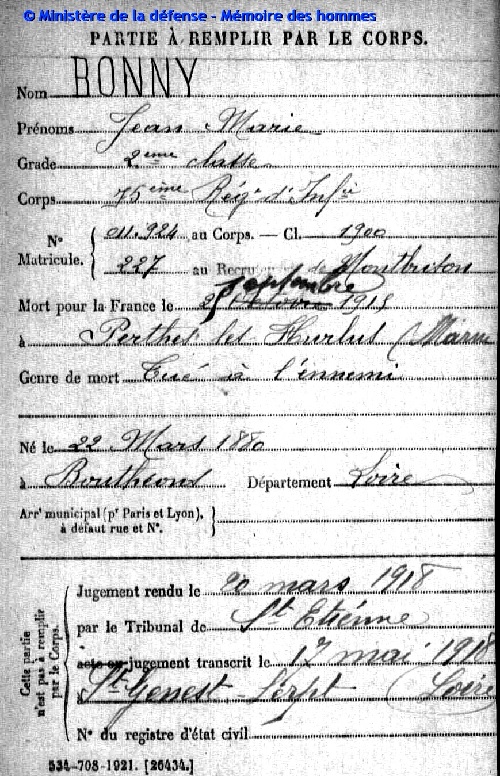 © Ministère de la défense - Mémoire des hommes
PARTIE À REMPLIR PAR LE CORPS.
Nom BONNY
Prénoms Jean Marie
Grade 2ème classe
Corps 75ème Régt d'Infie
N° Matricule. { 011.924 au Corps. — Cl. 1900
227 au Recrutement de Montbrison
septembre
Mort pour la France le 25 octobre 1915
à Perthes les Hurlus (Marne
Genre de mort Tué à l'ennemi
Né le 22 Mars 1880
à Bouthéon Département Loire
Arrt municipal (pr Paris et Lyon), à défaut rue et N°. {
Cette partie n'est pas à remplir par le Corps. {
Jugement rendu le 20 mars 1918
par le Tribunal de St Etiénne
acte ou jugement transcrit le 17 mai 1918
St Genest-Lerpt (Loire
N° du registre d'état civil
534-708-1921. [26434.]